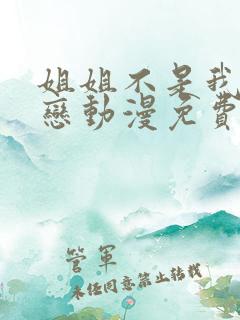 姐姐不是我
戀動漫免費
管軍
未任同意禁止转载